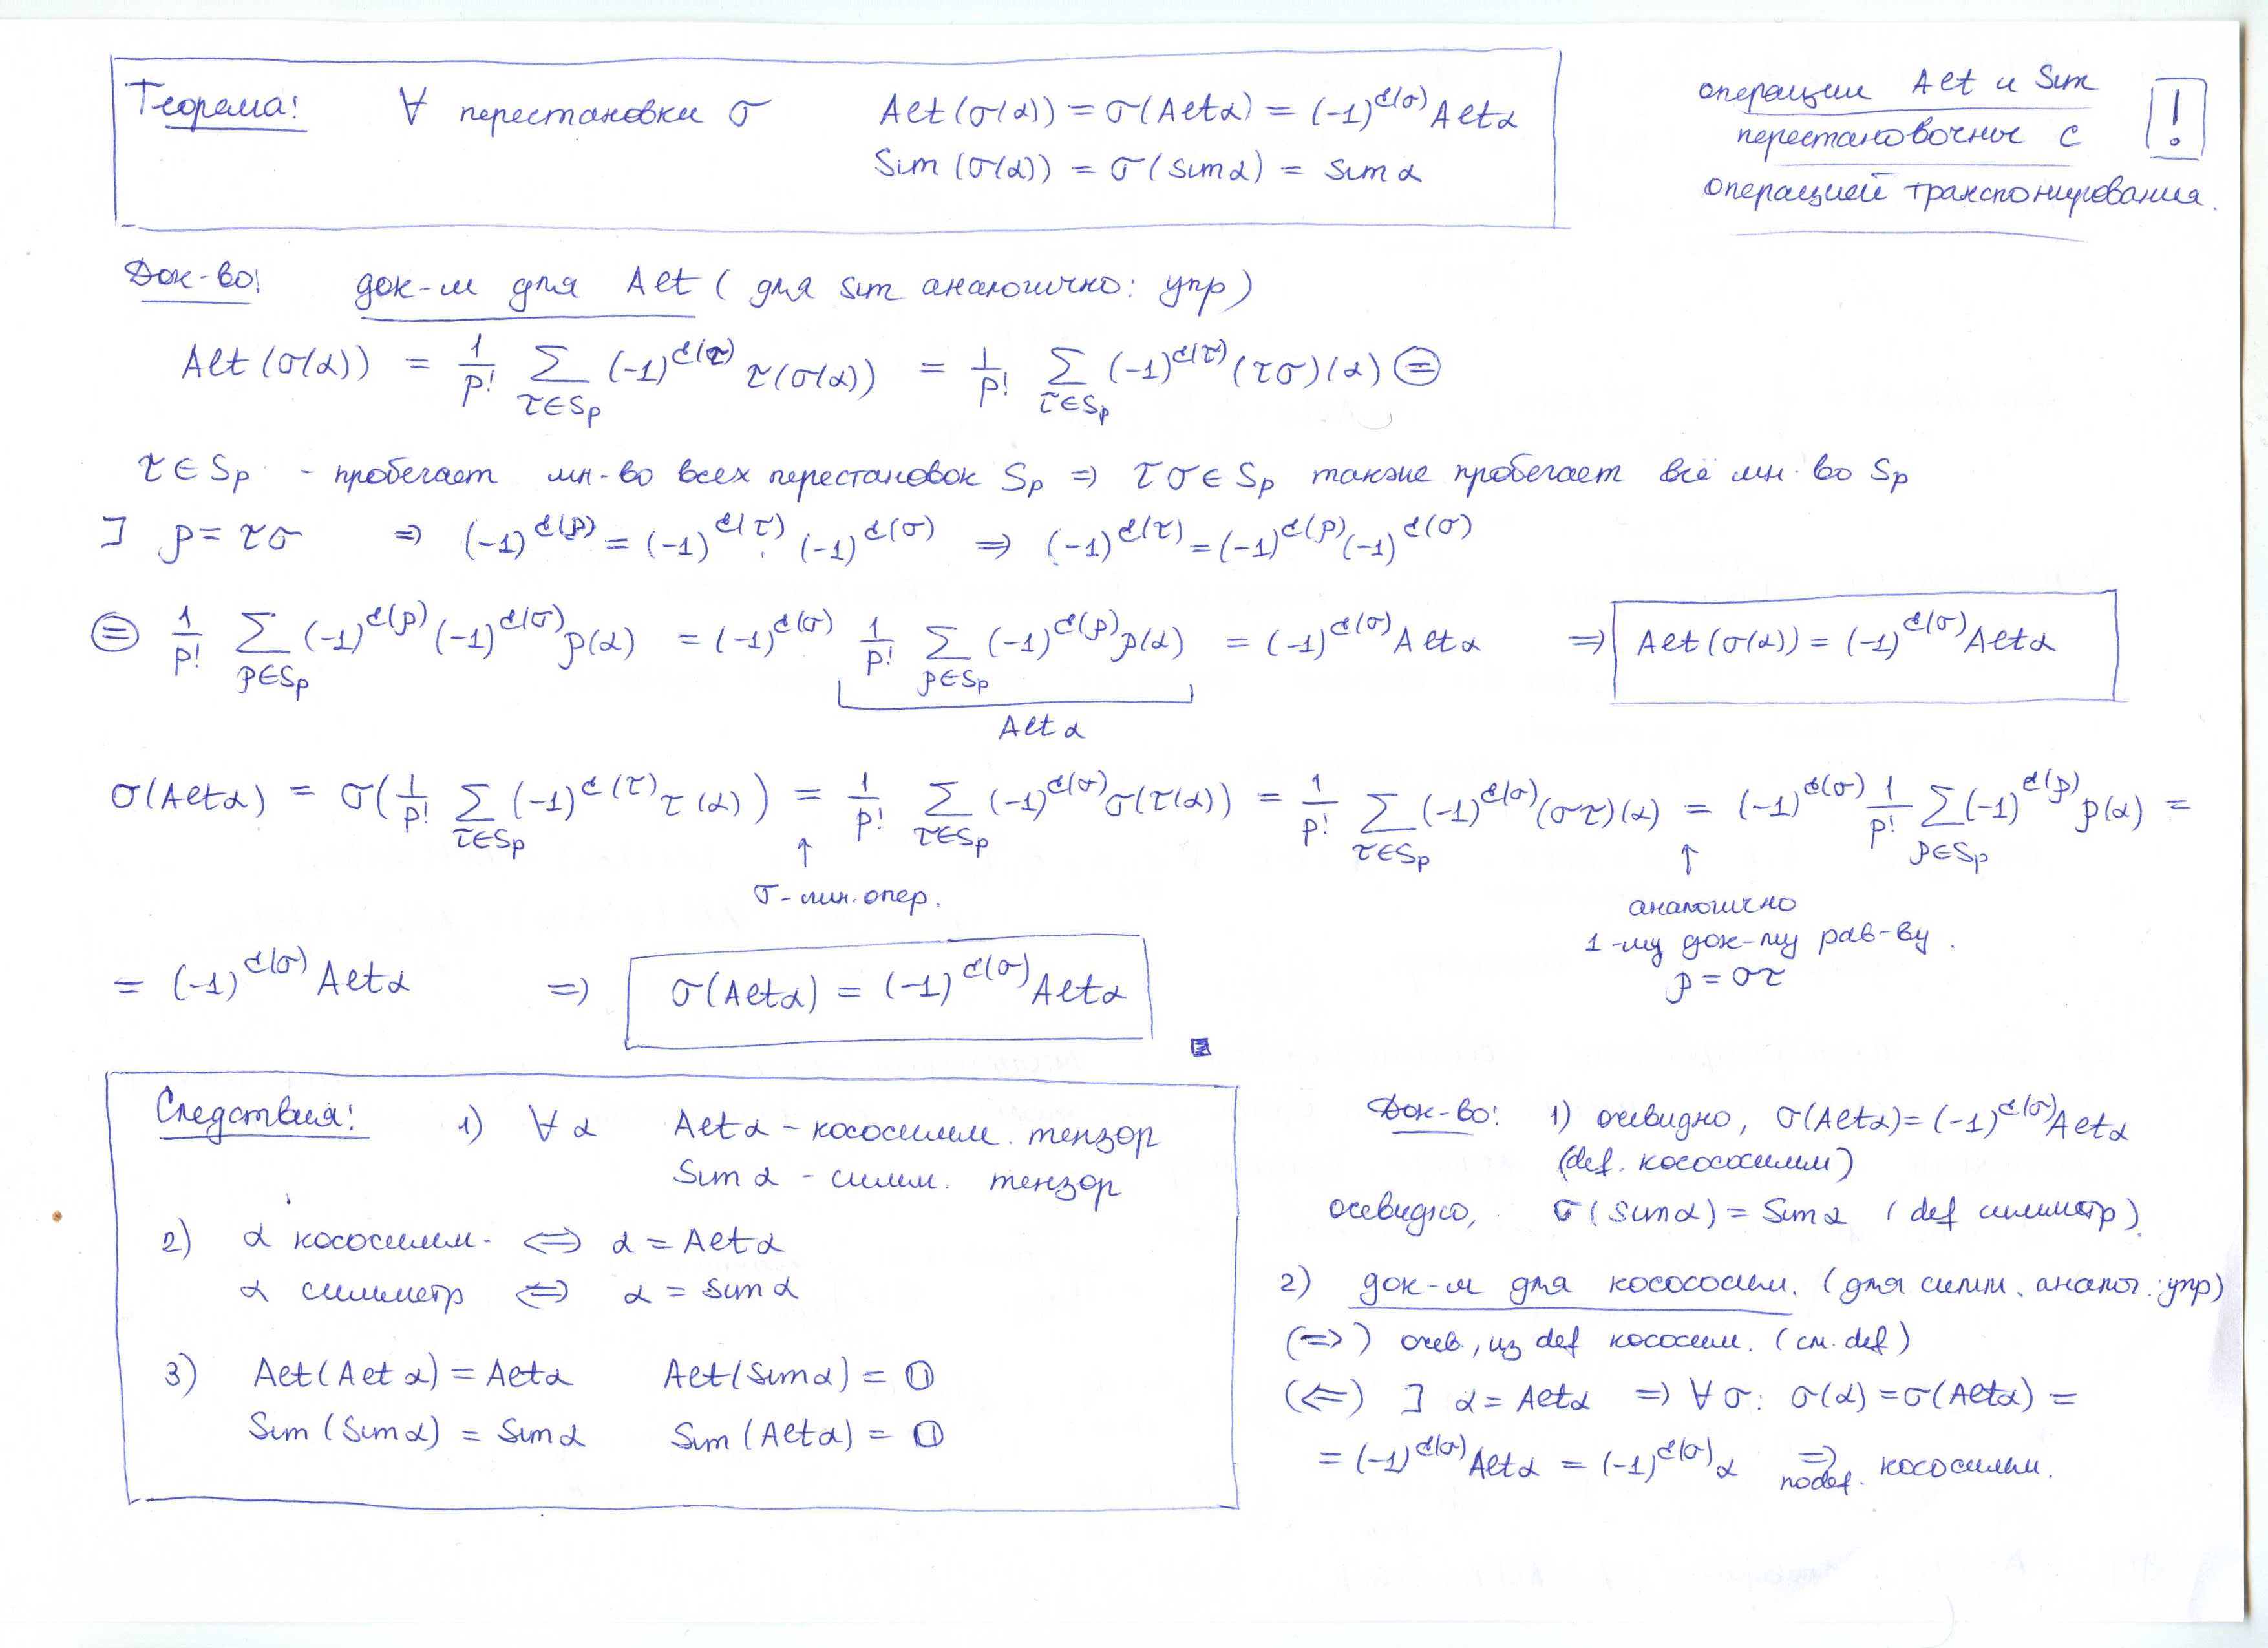 Теорема: ∀ перестановки σ Alt(σ(α)) = σ(Alt α) = (-1)^{ε(σ)} Alt α
Sim(σ(α)) = σ(sim α) = sim α
операции Alt и Sim
перестановочные с
операцией транспонирования.
!
Док-во: док-м для Alt (для sim аналогично: упр)
Alt(σ(α)) = 1/p! ∑_{τ∈S_p} (-1)^{ε(τ)} τ(σ(α)) = 1/p! ∑_{τ∈S_p} (-1)^{ε(τ)} (τσ)(α) ⊜
τ∈S_p - пробегает мн-во всех перестановок S_p ⇒ τσ∈S_p также пробегает всё мн-во S_p
] ρ = τσ ⇒ (-1)^{ε(ρ)} = (-1)^{ε(τ)} · (-1)^{ε(σ)} ⇒ (-1)^{ε(τ)} = (-1)^{ε(ρ)} (-1)^{ε(σ)}
⊜ 1/p! ∑_{ρ∈S_p} (-1)^{ε(ρ)} (-1)^{ε(σ)} ρ(α) = (-1)^{ε(σ)} 1/p! ∑_{ρ∈S_p} (-1)^{ε(ρ)} ρ(α) = (-1)^{ε(σ)} Alt α ⇒ Alt(σ(α)) = (-1)^{ε(σ)} Alt α
Alt α
σ(Alt α) = σ(1/p! ∑_{τ∈S_p} (-1)^{ε(τ)} τ(α)) = 1/p! ∑_{τ∈S_p} (-1)^{ε(σ)} σ(τ(α)) = 1/p! ∑_{τ∈S_p} (-1)^{ε(σ)} (στ)(α) = (-1)^{ε(σ)} 1/p! ∑_{ρ∈S_p} (-1)^{ε(ρ)} ρ(α) =
↑ ↑
σ-лин. опер.
аналогично
1-му док-му рав-ву.
ρ = στ
= (-1)^{ε(σ)} Alt α ⇒ σ(Alt α) = (-1)^{ε(σ)} Alt α
Следствия: 1) ∀ α Alt α - кососимм. тензор
Sim α - симм. тензор
2) α кососимм. ⇔ α = Alt α
α симметр ⇔ α = sim α
3) Alt(Alt α) = Alt α Alt(Sim α) = 𝟘
Sim(Sim α) = Sim α Sim(Alt α) = 𝟘
Док-во: 1) очевидно, σ(Alt α) = (-1)^{ε(σ)} Alt α
(def. косососимм)
очевидно, σ(sim α) = Sim α (def симметр).
2) док-м для косососим. (для симм. аналог: упр)
(⇒) очев., из def кососим. (см. def)
(⇐) ] α = Alt α ⇒ ∀ σ: σ(α) = σ(Alt α) =
= (-1)^{ε(σ)} Alt α = (-1)^{ε(σ)} α ⇒ по def. кососимм.